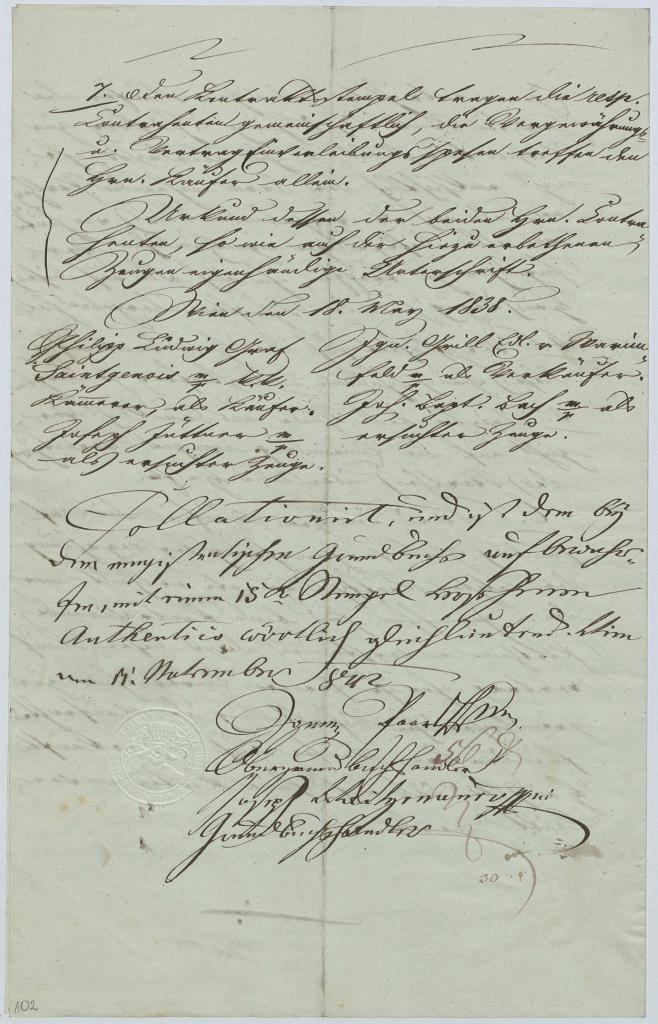 7. Den Kontraktsstempel tragen die resp.
Contrahenten gemeinschaftlich, die Vergewährungs-
u. Vertrag Einverleibungs spesen treffen den
Hrn. Käufer allein.
Urkund dessen der beiden Hrn. Contra-
henten, so wie auch der hiezu erbethenen
Zeugen eigenhändige Unterschrift.
Wien den 18. May 1838.
Philipp Ludwig Graf
Saintgenois m/p k.k.
Kämmerer, als Käufer.
Joseph Jüttner m/p
als ersuchter Zeuge.
Ign. Grill Edl. v. Warim-
feld m/p als Verkäufer.
Joh. Bapt. Bach m/p als
ersuchter Zeuge.
Collationirt, und ist dem bey
dem magistratischen Grundbuche aufbewahr-
ten, mit einem 15 Stempel
Authentico wörtlich gleichlautend. Wien
am 11. November 842
Obergrundbuchshandler
Joseph
Grundbuchshandler
30
102